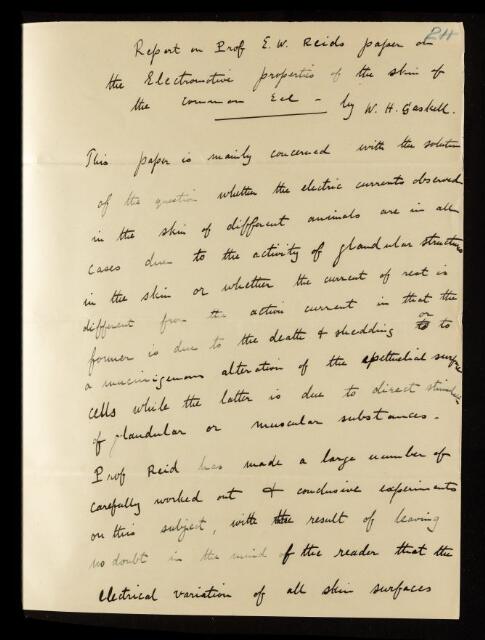 RH
Report on Prof E. W. Reids paper on
the Electromotive properties of the skin of
the common Eel – by W. H. Gaskell.
This paper is mainly concerned with the solution
of the question whether the electric currents observed
in the skin of different animals are in all
cases due to the activity of glandular structures
in the skin or whether the current of rest is
different from the action current in that the
former is due to the death & shedding or to
a mucinigenous alteration of the epithelial surface
cells while the latter is due to direct stimulation
of glandular or muscular substances –
Prof Reid has made a large number of
carefully worked out & conclusive experiments
on this subject, with the result of leaving
no doubt in the mind of the reader that the
electrical variation of all skin surfaces